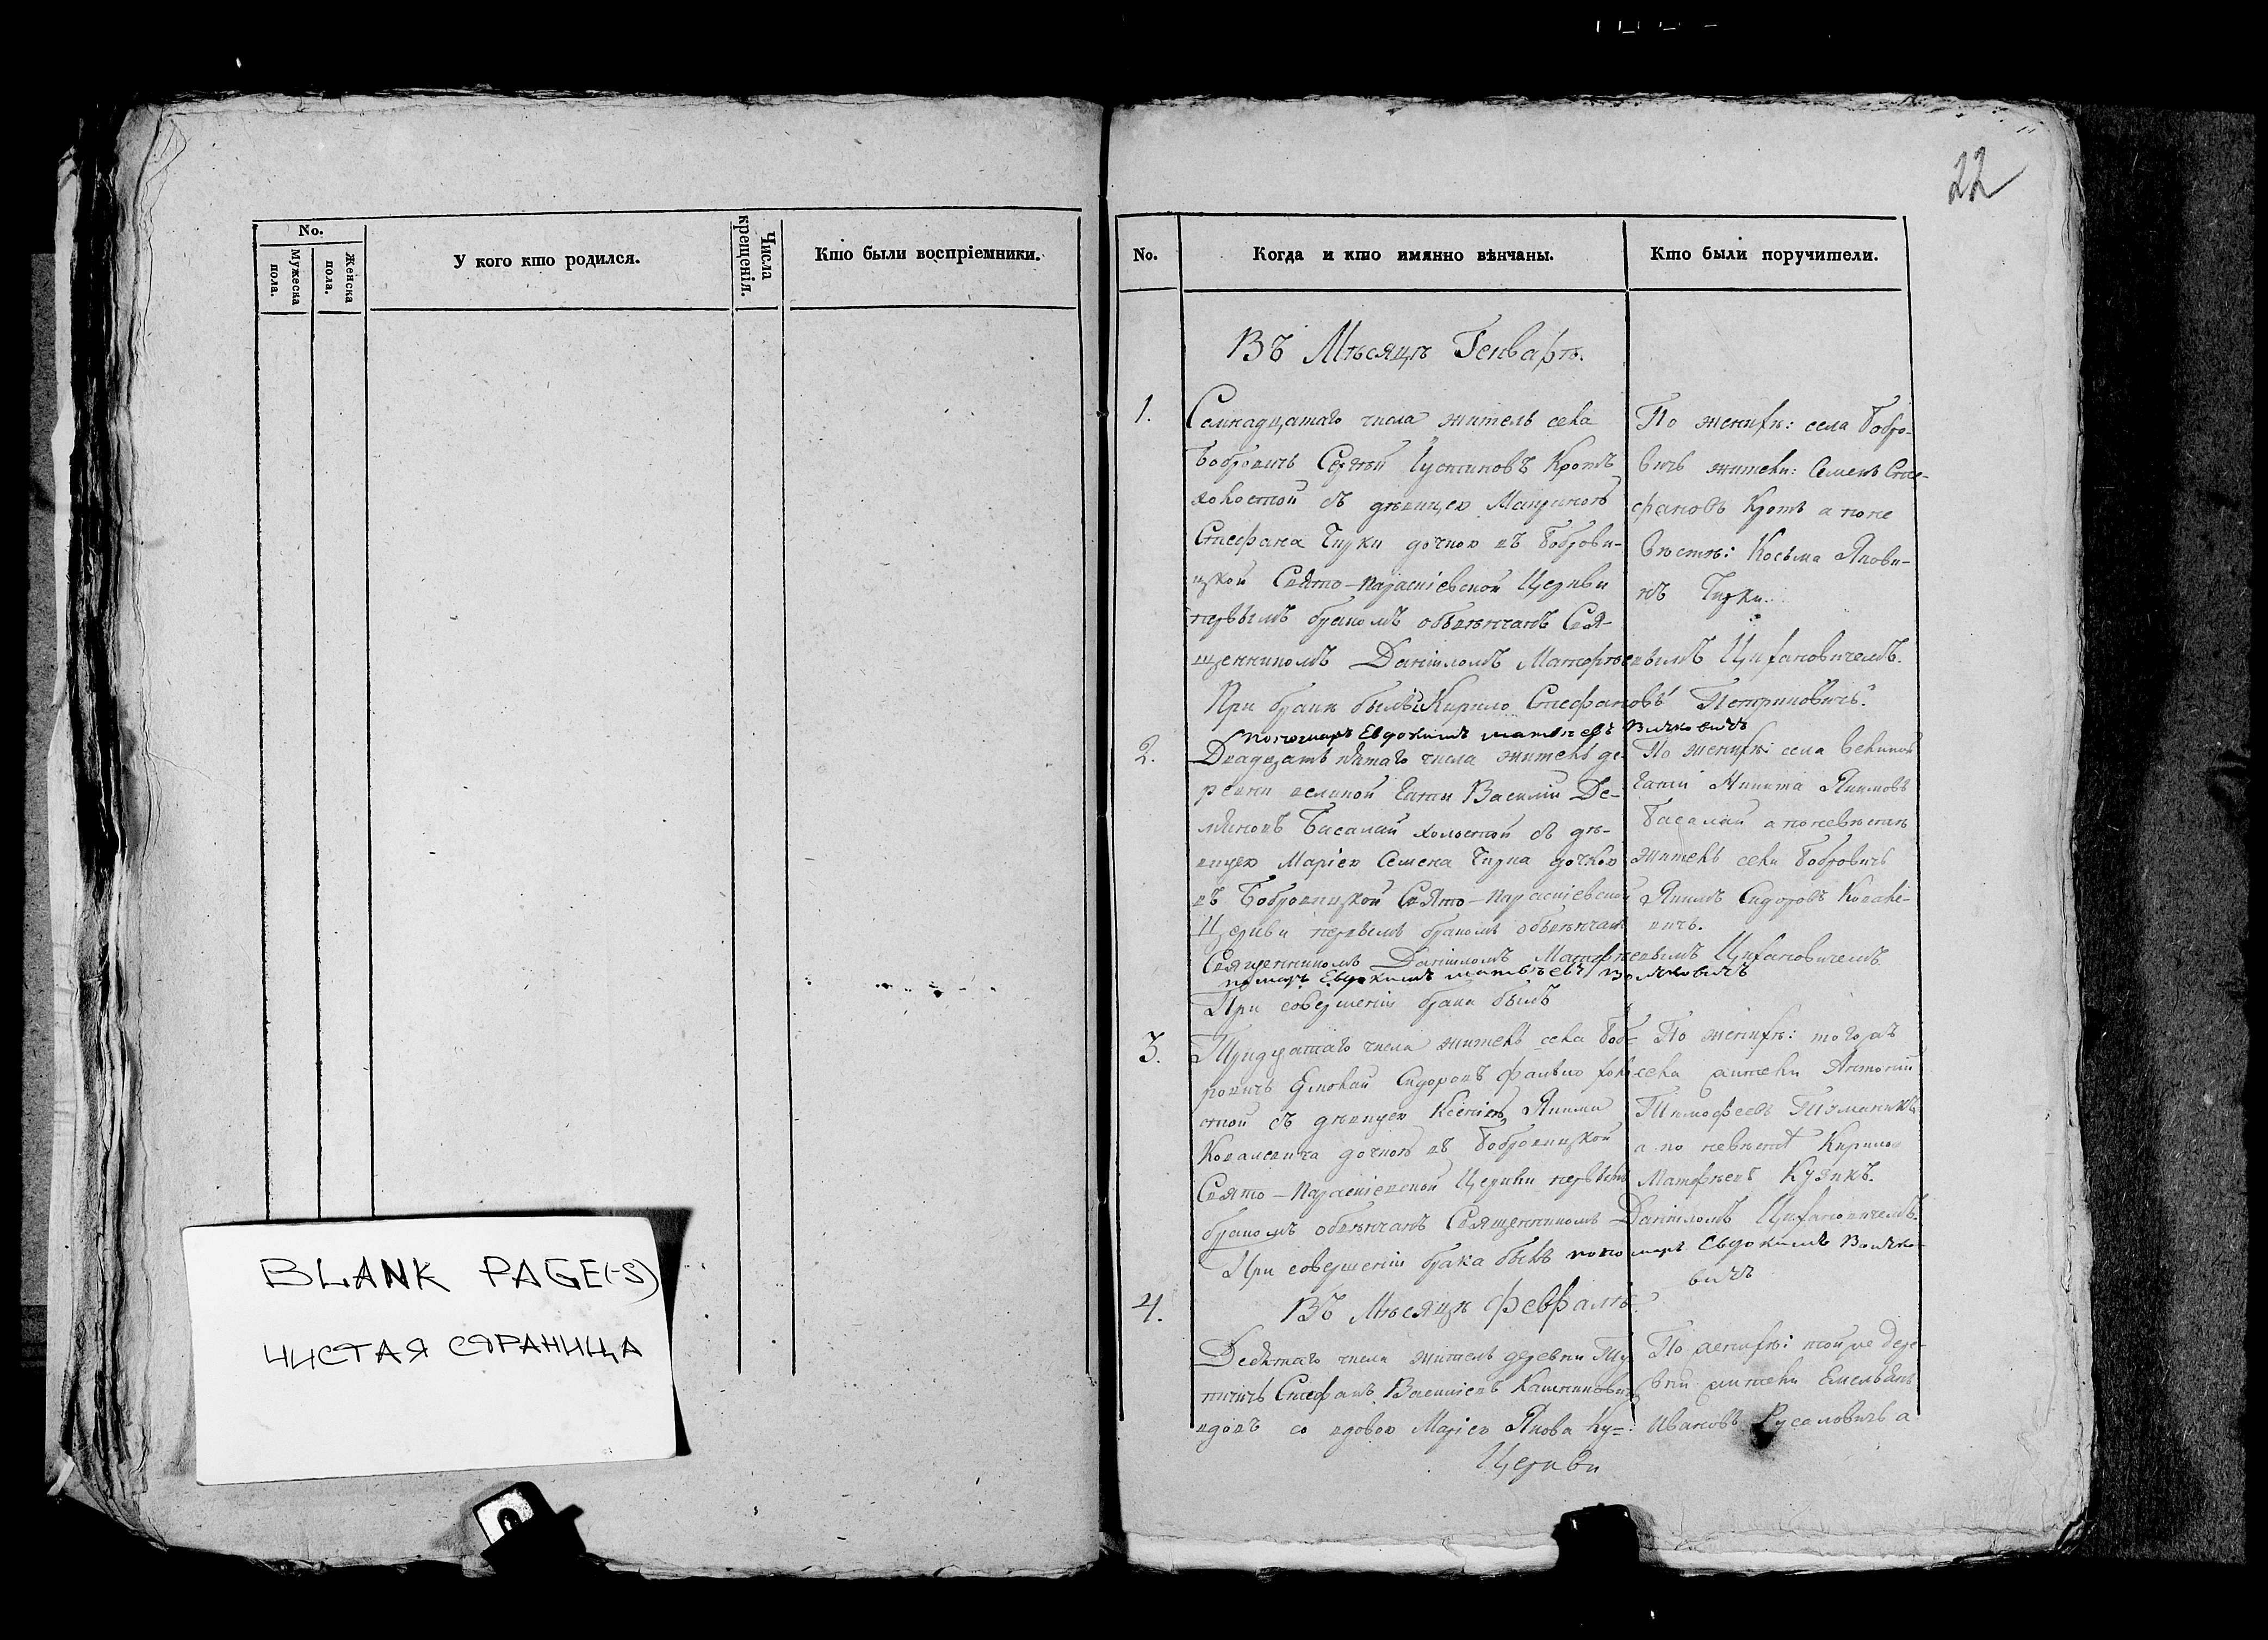 No.
Мужеска пола.
Женска пола.
У кого кто родился.
Числа крещенія.
Кто были воспріемники.
BLANK PAGE(-S)
ЧИСТАЯ СТРАНИЦА
22
No.
Когда и кто имянно вѣнчаны.
Кто были поручители.
Въ Мѣсяцѣ Генварѣ.
1.
Семнадцатаго числа житель села
Бобровичь Сергѣй Іустиновъ Кротъ
холостой съ дѣвицею Мариною
Стефана Чирки дочкою въ Боброви-
цкой Свято-Параскіевской Церкви
первымъ бракомъ обвѣнчанъ Свя-
щенникомъ Даніиломъ Матфѣевымъ Цихановичемъ.
При бракѣ былъ Кирило Стефановъ Петриковичъ
пономарь Евдокимъ Матвѣевъ
По женихѣ: села Бобро-
вичь жители: Семенъ Сте-
фановъ Кротъ а по не
вѣстѣ: Косьма Якови-
въ Чирки.
2.
Двадцать пятаго числа житель де-
ревни великой Гати Василій Де-
мяновъ Басалай холостой съ дѣ-
вицею Маріею Семена Чирка дочкою
въ Бобровицкой Свято-Параскіевской
Церкви первымъ бракомъ обвѣнчанъ
Священникомъ Даніиломъ Матфѣевымъ Цихановичемъ
Евдокимъ Матвѣевъ
При совершеніи брака былъ
По женихѣ: села Великой
Гати Никита Якимовъ
Басалай а по невѣстѣ
житель села Бобровичь
Якимъ Сидоровъ Ковале-
вичь.
3.
Тридцатаго числа житель села Боб-
ровичь Сидоровъ холо
стой съ дѣвицею Ксеніею Якима
Ковалевича дочкою въ Бобровицкой
Свято-Параскіевской Церкви первымъ
бракомъ обвѣнчанъ Священникомъ Даніиломъ Цихановичемъ.
При совершеніи брака былъ пономарь Евдокимъ
вичъ
По женихѣ: того жъ
села жители Антоній
Тимофеевъ
а по невѣстѣ Кирило
Матфѣевъ Кузикъ.
4.
Въ Мѣсяцѣ Февралѣ.
Девятаго числа житель деревни Ту-
пичичь Стефанъ Василіевъ
вдовъ со вдовою Маріею Якова Ку=
Церкви
По женихѣ: той же дере-
вни жители Емельянъ
Ивановъ Русаловичь а